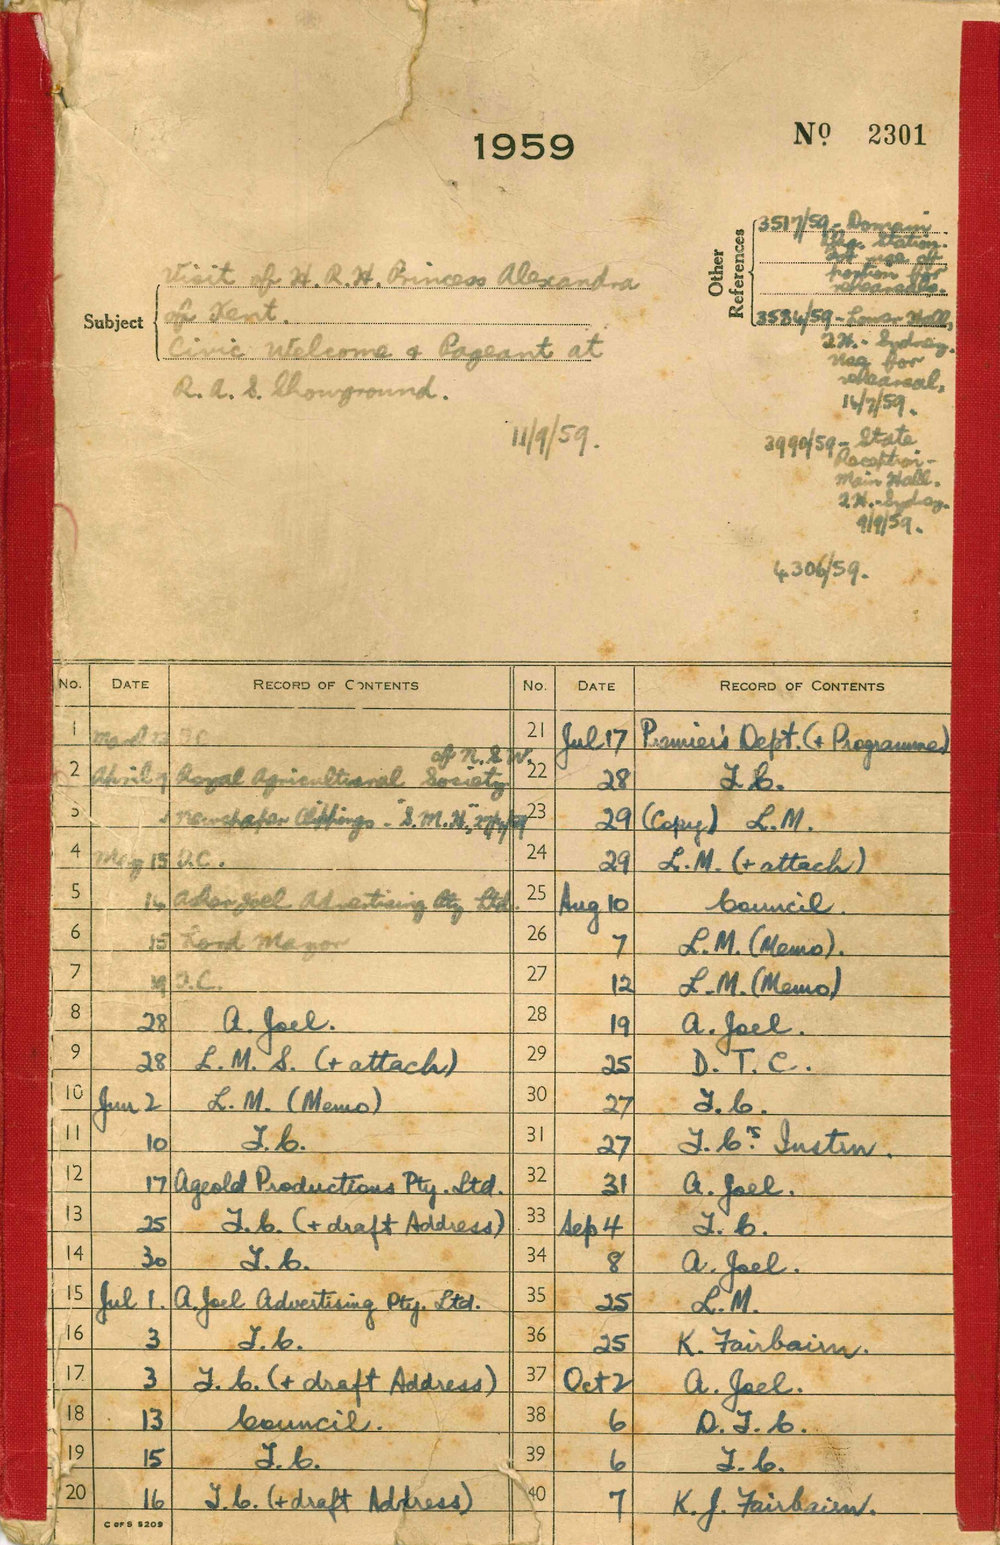 1959
Nº 2301
Other References
3517/59 - Domain
Stn. Station.
use of
portion for
rehearsals.
3584/59 - Lower Hall,
T.H. - Sydney.
Use for
rehearsal,
14/7/59.
3990/59 - State
Reception -
Main Hall.
T.H. - Sydney.
9/9/59.
4306/59.
Subject
Visit of H.R.H. Princess Alexandra
of Kent.
Civic Welcome & Pageant at
R.A.S. Showground.
11/9/59.
No. DATE RECORD OF CONTENTS
1 March
2 April 9 Royal Agricultural Society of N.S.W.
3 Newspaper Clippings - "S.M.H."
4 May 13 T.C.
5 14 Asher Joel Advertising Pty Ltd.
6 15 Lord Mayor
7 19 T.C.
8 28 A. Joel.
9 28 L. M. S. (+ attach)
10 Jun 2 L. M. (Memo)
11 10 T.C.
12 17 Ageold Productions Pty. Ltd.
13 25 T.C. (+ draft Address)
14 30 T.C.
15 Jul 1. A. Joel Advertising Pty. Ltd.
16 3 T.C.
17 3 T.C. (+ draft Address)
18 13 Council.
19 15 T.C.
20 16 T.C. (+ draft Address)
C OF S 5209
No. DATE RECORD OF CONTENTS
21 Jul 17 Premier's Dept. (+ Programme)
22 28 T.C.
23 29 (Copy) L.M.
24 29 L.M. (+ attach)
25 Aug 10 Council.
26 7 L.M. (Memo).
27 12 L.M. (Memo)
28 19 A. Joel.
29 25 D. T. C.
30 27 T.C.
31 27 T.C's Instrn.
32 31 A. Joel.
33 Sep 4 T.C.
34 8 A. Joel.
35 25 L.M.
36 25 K. Fairbairn.
37 Oct 2 A. Joel.
38 6 D.T.C.
39 6 T.C.
40 7 K. J. Fairbairn.